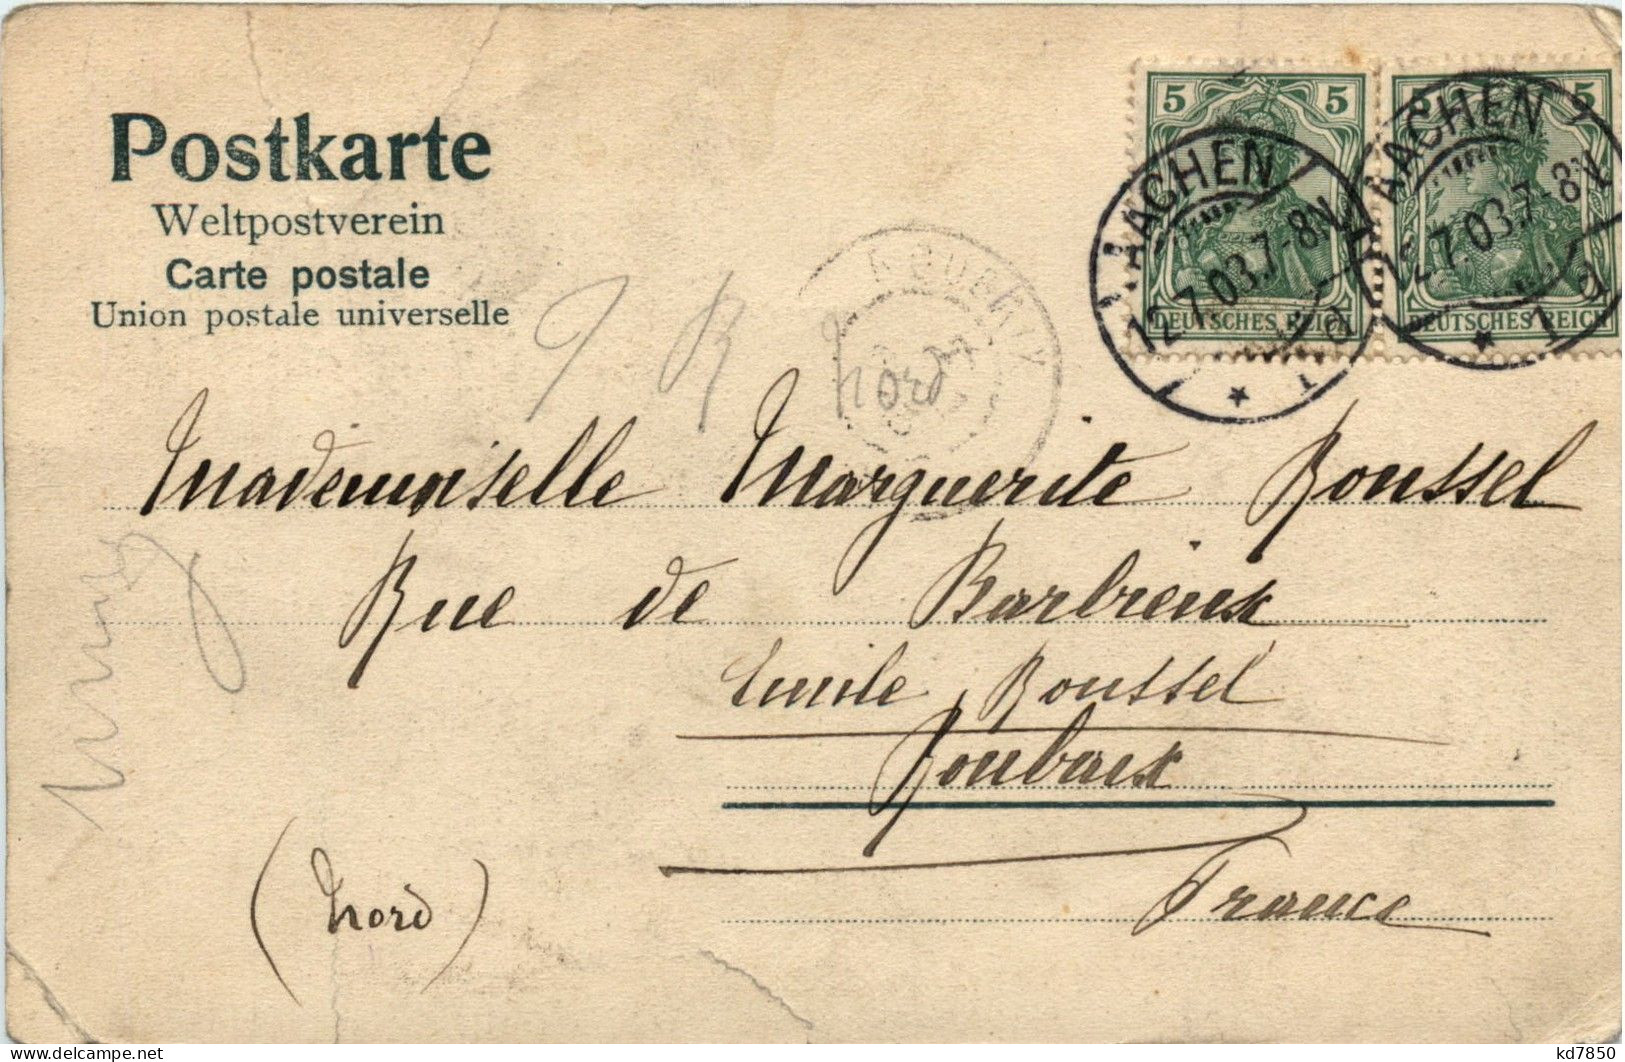 Postkarte
Weltpostverein
Carte postale
Union postale universelle
5 5
DEUTSCHES REICH
AACHEN
12.7.03.7-8N.
* 1 d
5
DEUTSCHES REICH
AACHEN
12.7.03.7-8N.
* 1 d
Nord
Mademoiselle Marguerite Roussel
Rue de Barbieux
Emile Roussel
Roubaix
(Nord)
France
kd7850